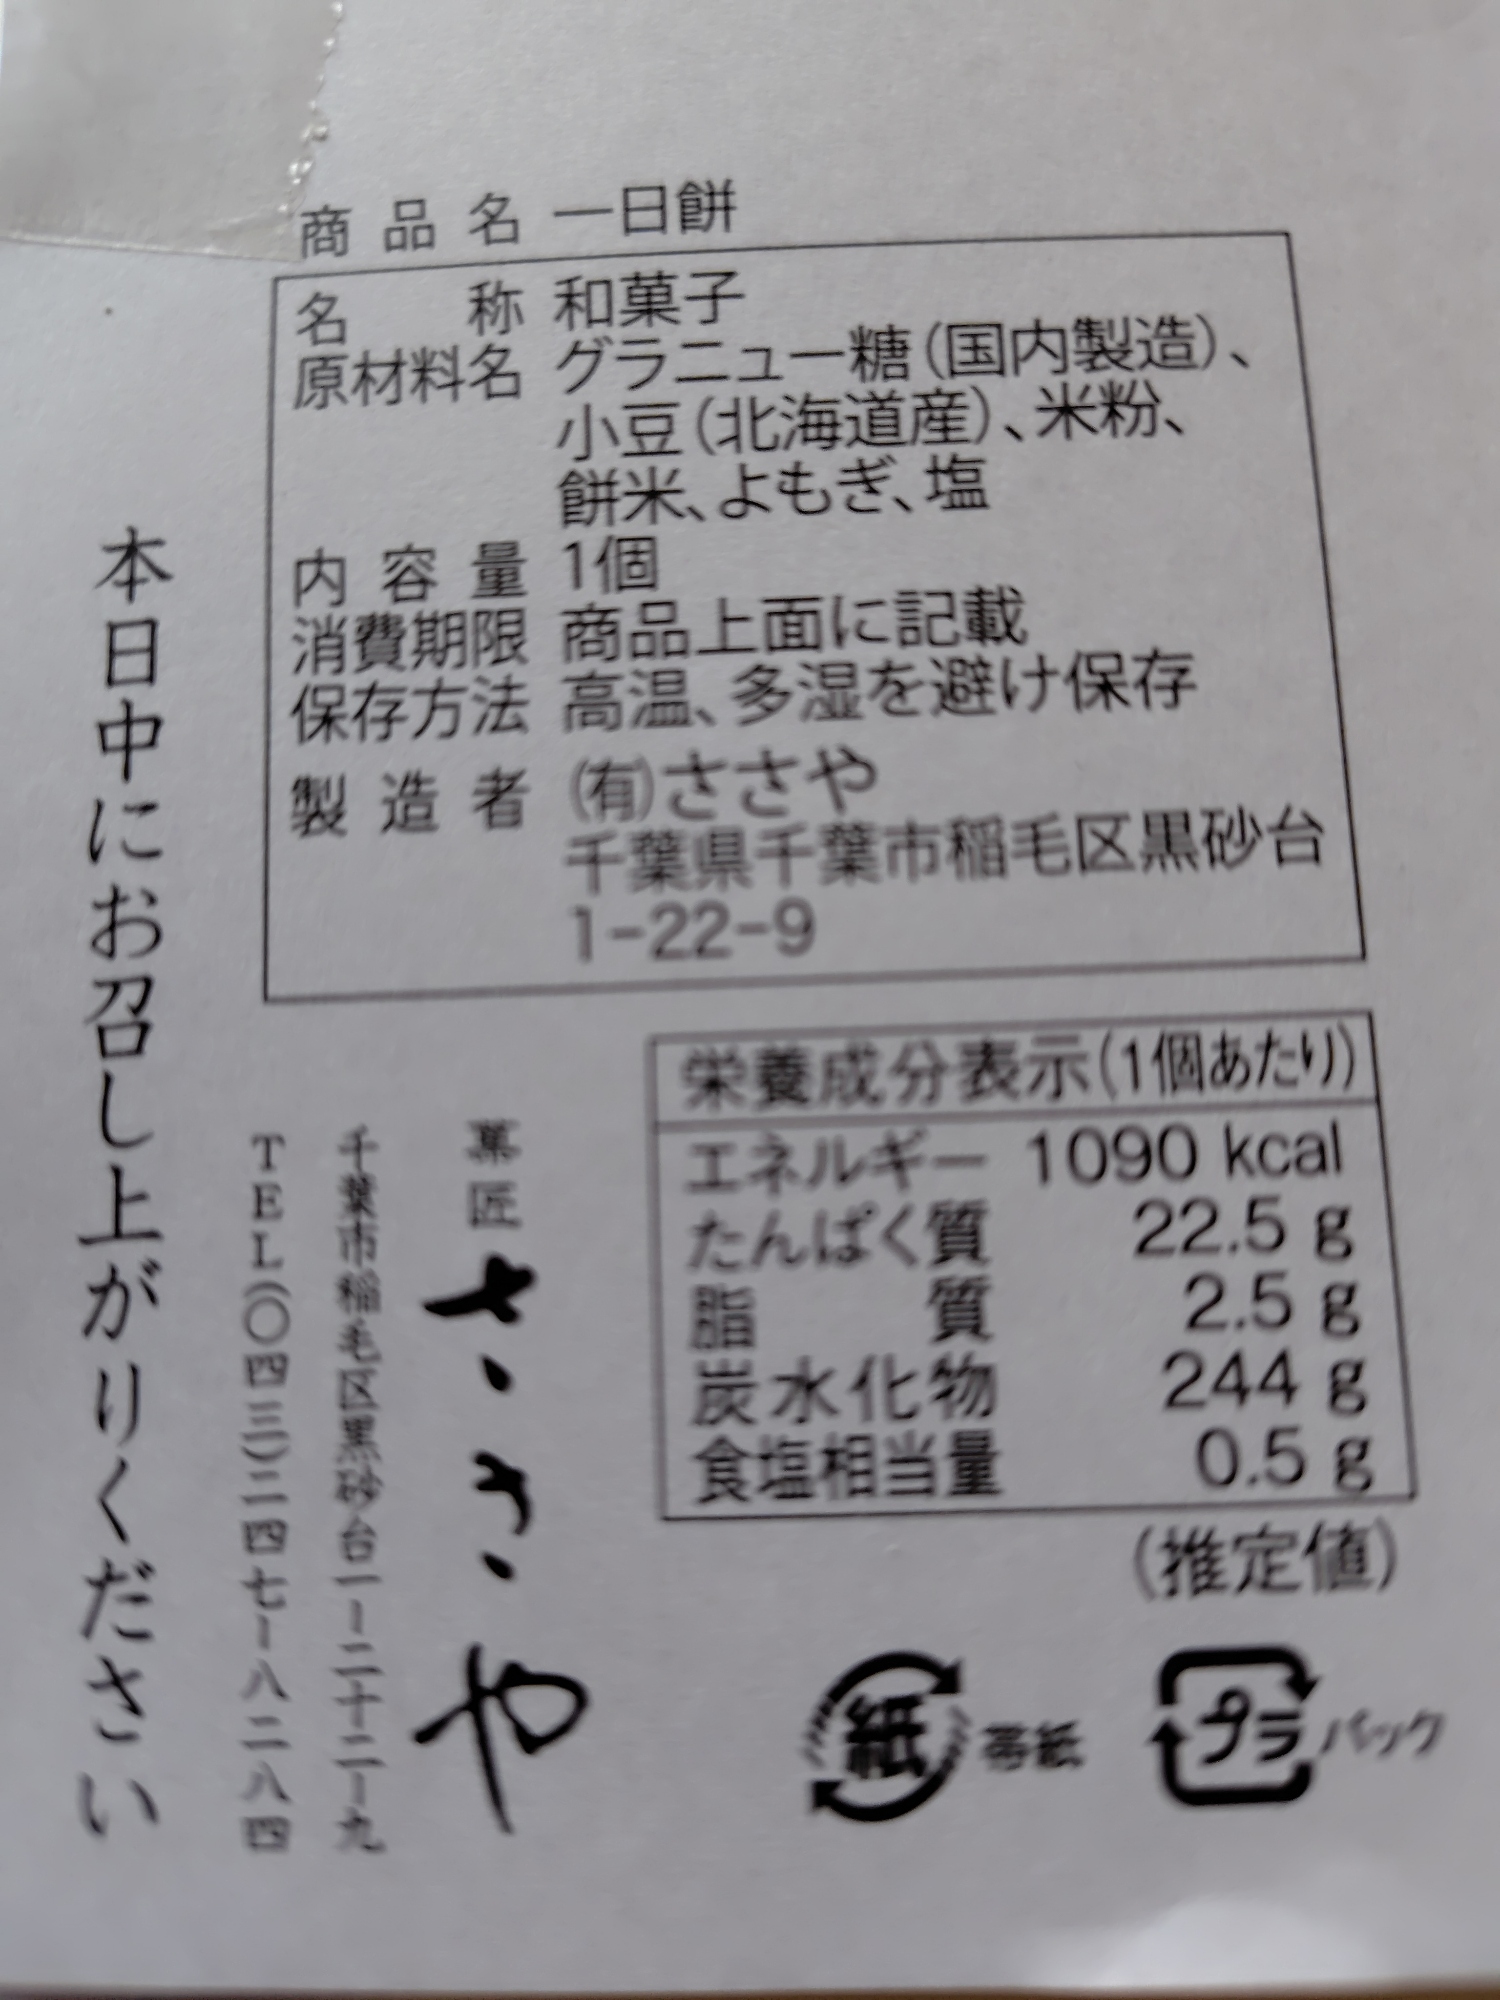 商品名 一日餅
名称 和菓子
原材料名 グラニュー糖(国内製造)、
小豆(北海道産)、米粉、
餅米、よもぎ、塩
内容量 1個
消費期限 商品上面に記載
保存方法 高温、多湿を避け保存
製造者 (有)ささや
千葉県千葉市稲毛区黒砂台
1-22-9
栄養成分表示(1個あたり)
エネルギー 1090 kcal
たんぱく質 22.5 g
脂質 2.5 g
炭水化物 244 g
食塩相当量 0.5 g
(推定値)
紙 帯紙
プラ パック
菓匠 さゝきゝや
千葉市稲毛区黒砂台一ー二十二ー九
TEL(〇四三)二四七ー八二八四
本日中にお召し上がりください